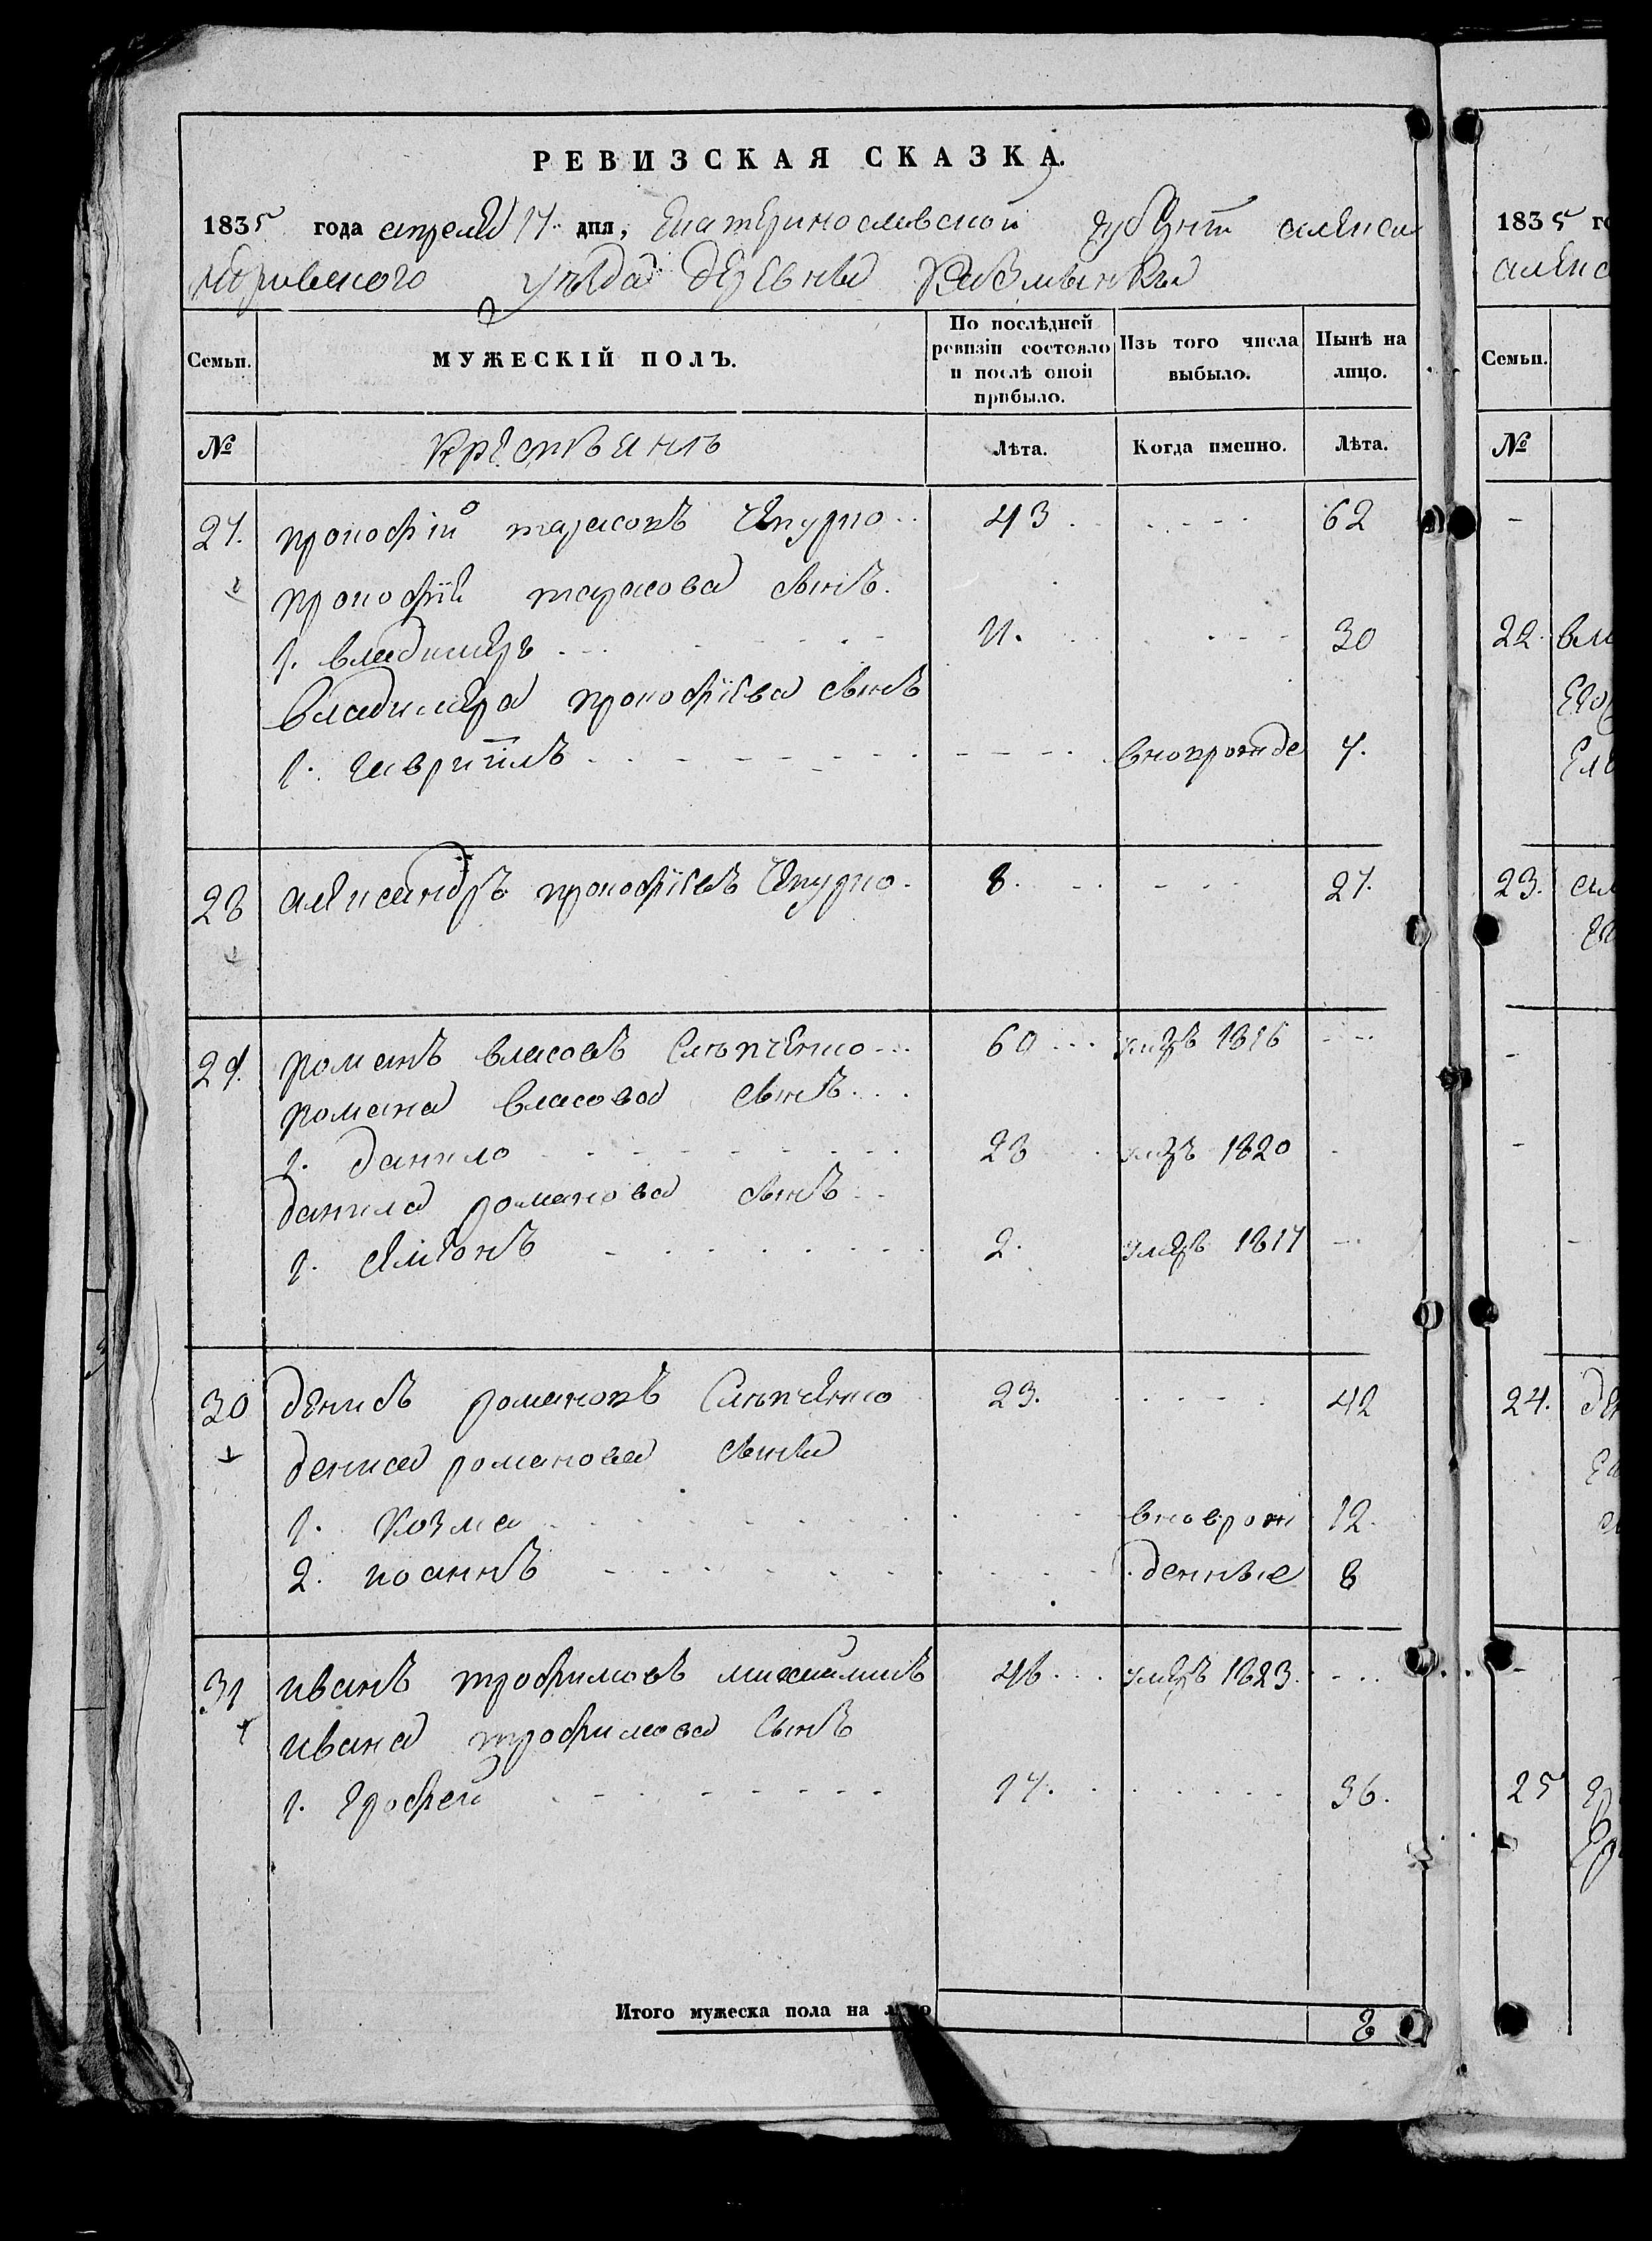 РЕВИЗСКАЯ СКАЗКА.
1835 года апреля 17 дня, Екатеринославской губернии алексан
дровского уѣзда деревни
Семьи. МУЖЕСКІЙ ПОЛЪ. По послѣдней ревизіи состояло и послѣ оной прибыло. Изъ того числа выбыло. Нынѣ на лицо.
№ крестьянъ Лѣта. Когда именно. Лѣта.
27. прокофій тарасовъ Чепурно 43 62
прокофія тарасова сынъ.
1. владимеръ 11. 30
владимера прокофіева сынъ
1. гавриилъ вноврожде 7.
28 александръ прокофіевъ Чепурно. 8. 27.
29. романъ власовъ Слѣпченко 60 умеръ 1816
романа власова сынъ
1. данило 28 умеръ 1820
данила романова сынъ
1. семіонъ 2. умеръ 1817
30 денисъ романовъ Слѣпченко 23. 42
дениса романова сынья
1. козма вноврож 12.
2. иоаннъ денные 8
31 иванъ трофимовъ 46 умеръ 1823.
ивана трофимова сынъ
1. Ерофей 17. 36.
Итого мужеска пола на лицо 8
1835 го
алекс
Семьи.
№
22
23.
24.
25